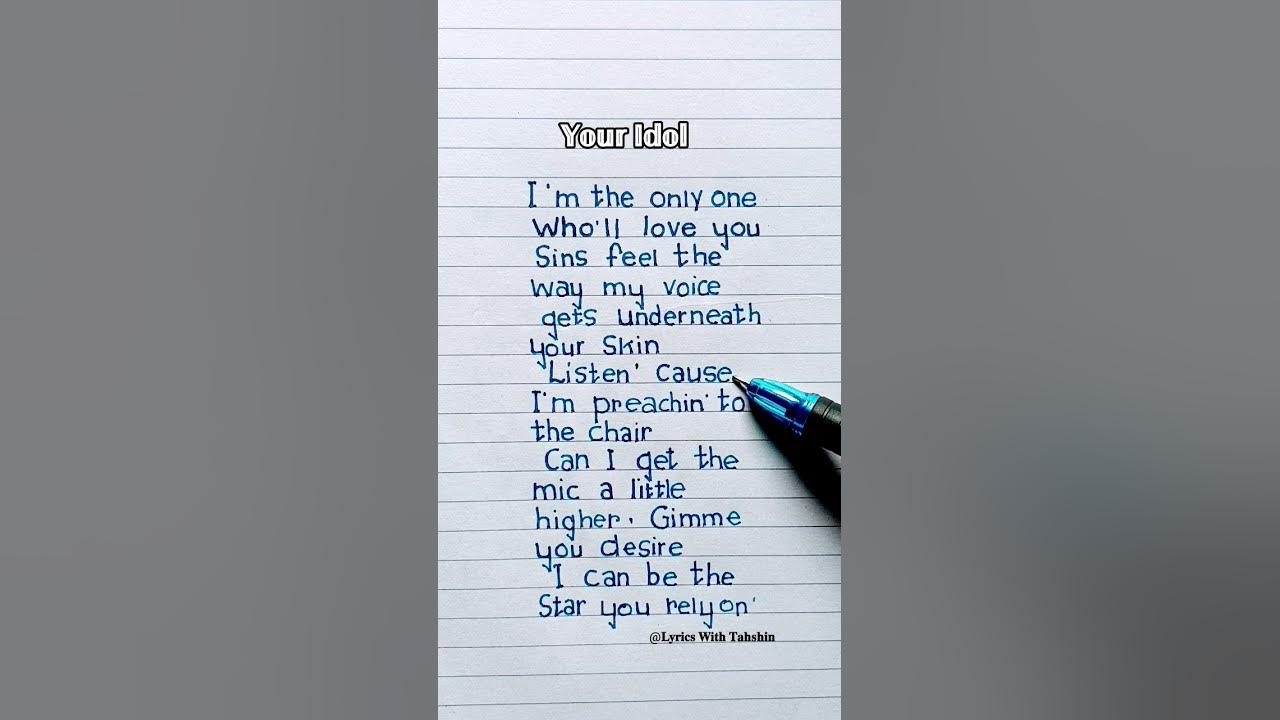 Your Idol
I'm the only one
Who'll love you
Sins feel the
way my voice
gets underneath
your Skin
Listen' cause
I'm preachin' to
the chair
Can I get the
mic a little
higher. Gimme
you desire
I can be the
Star you rely on'
@Lyrics With Tahshin